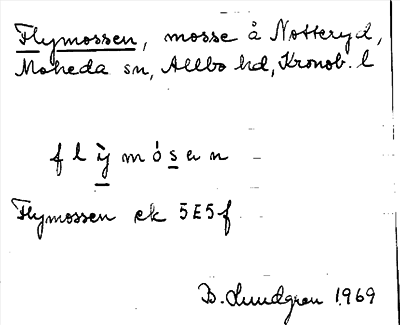 Flymossen, mosse å Notteryd,
Moheda sn, Allbo hd, Kronob. l
flỳmósan
Flymossen ek 5E5f
B. Lundgren 1969